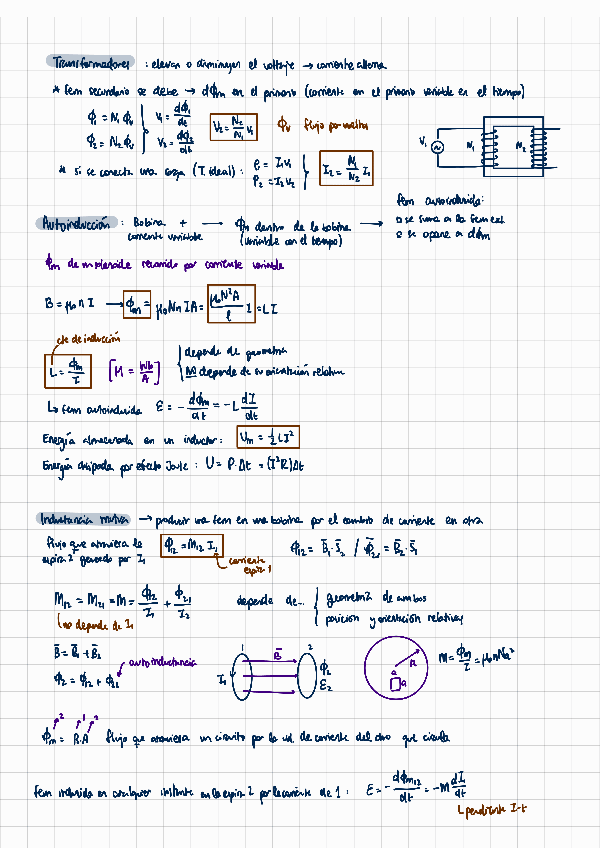 Transformadores : elevan o disminuyen el voltaje → corriente alterna
* fem secundario se debe → dϕm en el primario (corriente en el primario variable en el tiempo)
ϕ₁ = N₁ϕᵥ V₁ = dϕ₁/dt
ϕ₂ = N₂ϕᵥ V₂ = dϕ₂/dt
V₂ = N₂/N₁ V₁ ϕᵥ flujo por vuelta
V₁ N₁ N₂
* si se conecta una carga (T. ideal) : P₂ = I₂V₂ I₂ = N₁/N₂ I₁
fem autoinducida:
Autoinducción : Bobina + corriente variable → ϕm dentro de la bobina (variable con el tiempo) →
o se suma a la fem ext.
o se opone a dϕm
ϕm de un solenoide recorrido por corriente variable
B = μ₀ n I → ϕm = μ₀ N n I A = μ₀N²A/l I = L I
cte de inducción
L = ϕm/I [H = Wb/A]
depende de geometría
NO depende de su orientación relativa
↳ fem autoinducida ε = - dϕm/dt = - L dI/dt
Energía almacenada en un inductor: Um = ½ L I²
Energía disipada por efecto Joule : U = P·Δt = (I²R)Δt
Inductancia mutua → producir una fem en una bobina por el cambio de corriente en otra
flujo que atraviesa la espira 2 generado por I₁
ϕ₁₂ = M₁₂ I₁ ϕ₁₂ = B̄₁·S̄₂ / ϕ₂₁ = B̄₂·S̄₁
corriente espira 1
M₁₂ = M₂₁ = M = ϕ₁₂/I₁ + ϕ₂₁/I₂ depende de...
geometría de ambos
posición y orientación relativa
no depende de I₁
B̄ = B̄₁ + B̄₂
autoinductancia
ϕ₂ = ϕ₁₂ + ϕ₂₂
1 B̄ 2
I₁ ϕ₂
ε₂
R
a a
M = ϕm/I = μ₀nNa²
2 1 2
ϕm = B·A flujo que atraviesa un circuito por la ud. de corriente del otro que circula
fem inducida en cualquier instante en la espira 2 por la corriente de 1 : ε = - dϕm₁₂/dt = - M dI₁/dt
↳ pendiente I-t